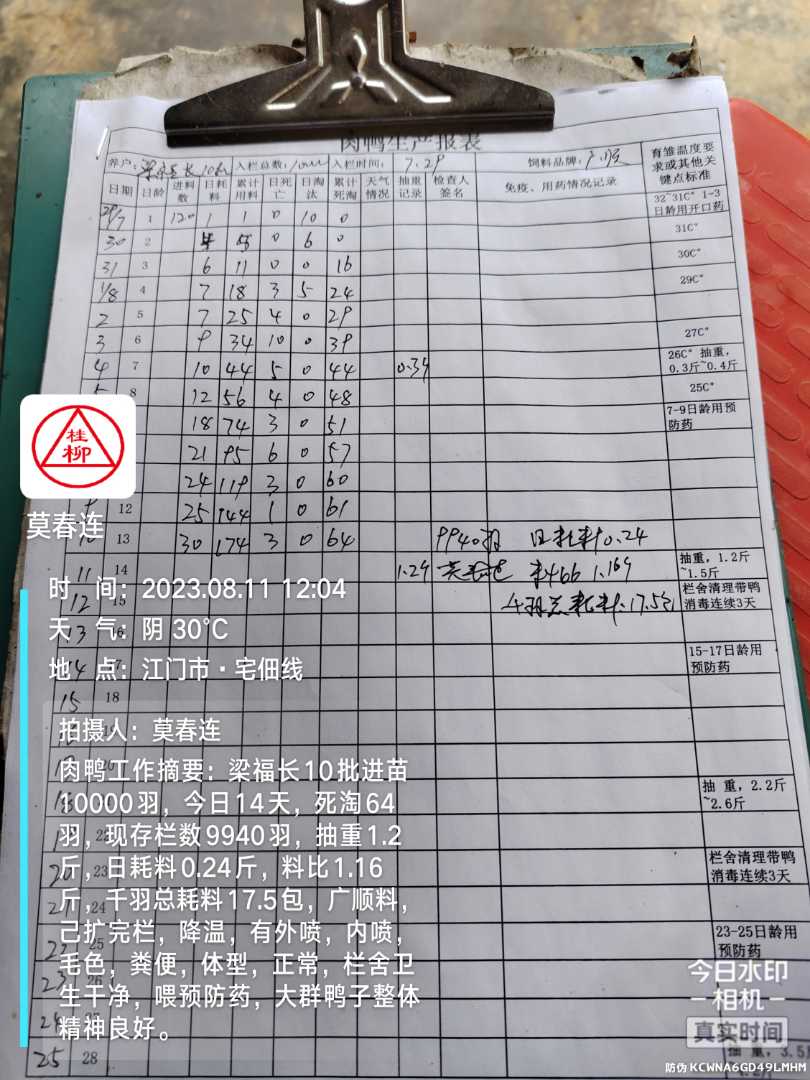 肉鸭生产报表
养户: 入栏总数: 入栏时间: 7.29 饲料品牌: 广顺 育雏温度要求或其他关键点标准
日期 日龄 进料数 日耗料 累计用料 日死亡 日淘汰 累计死淘 天气情况 抽重记录 检查人签名 免疫、用药情况记录
29/7 1 120 1 1 0 10 0 32~31C° 1-3日龄用开口药
30 2 5 0 6 0 31C°
31 3 6 11 0 0 16 30C°
1/8 4 7 18 3 5 24 29C°
2 5 7 25 4 0 29
3 6 9 34 10 0 39 27C°
4 7 10 44 5 0 44 0.34 26C° 抽重,0.3斤~0.4斤
5 8 12 56 4 0 48 25C°
18 74 3 0 51 7-9日龄用预防药
21 95 6 0 57
24 119 3 0 60
9 12 25 144 1 0 61
10 13 30 174 3 0 64 9940羽 日耗料0.24
11 14 1.24 莫春连 料466 1.169 抽重,1.2斤~1.5斤
12 15 千羽总耗料17.5包 栏舍清理带鸭消毒连续3天
13 16
14 17 15-17日龄用预防药
15 18
抽 重,2.2斤~2.6斤
20 23 栏舍清理带鸭消毒连续3天
21 24
22 25 23-25日龄用预防药
23 26
24
25 28 抽 重,3.5斤
桂柳
莫春连
时 间: 2023.08.11 12:04
天 气: 阴 30℃
地 点: 江门市·宅佃线
拍摄人: 莫春连
肉鸭工作摘要: 梁福长10批进苗
10000羽, 今日14天, 死淘64
羽, 现存栏数9940羽, 抽重1.2
斤, 日耗料0.24斤, 料比1.16
斤, 千羽总耗料17.5包, 广顺料,
己扩完栏, 降温, 有外喷, 内喷,
毛色, 粪便, 体型, 正常, 栏舍卫
生干净, 喂预防药, 大群鸭子整体
精神良好。
今日水印
相机
真实时间
防伪 KCWNA6GD49LMHM